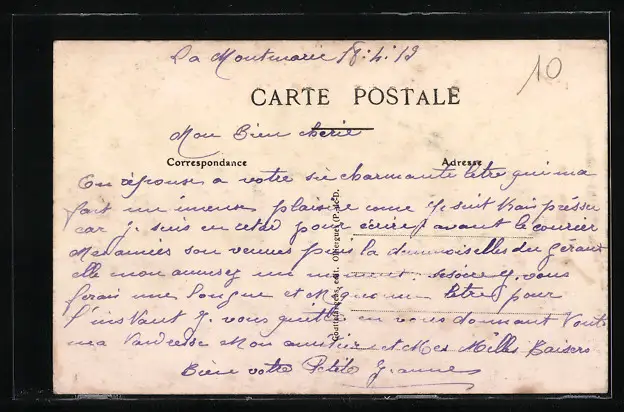 La Montmarie 18.4.19
10
CARTE POSTALE
Mon Bien cherie
Correspondance
Adresse
En réponse a votre si charmante letre qui ma
fait un imense plaisire come je suit
car j. suis en retard pour écrire avant le courier
Mes amies son venues puis la demoiselles du gérant
elle mon amusez un moment. se soire j. vous
ferais une longue et letre pour
l'instant j. vous quitte en vous donnant tout
ma tandresse Mon amitier et Mes Milles Baisers
Bien votre Petite Jeanne